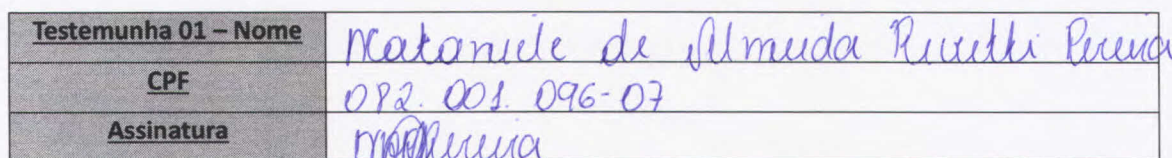 Testemunha 01 – Nome Nataniele de Almeida Pereira
CPF 082.001.096-07
Assinatura